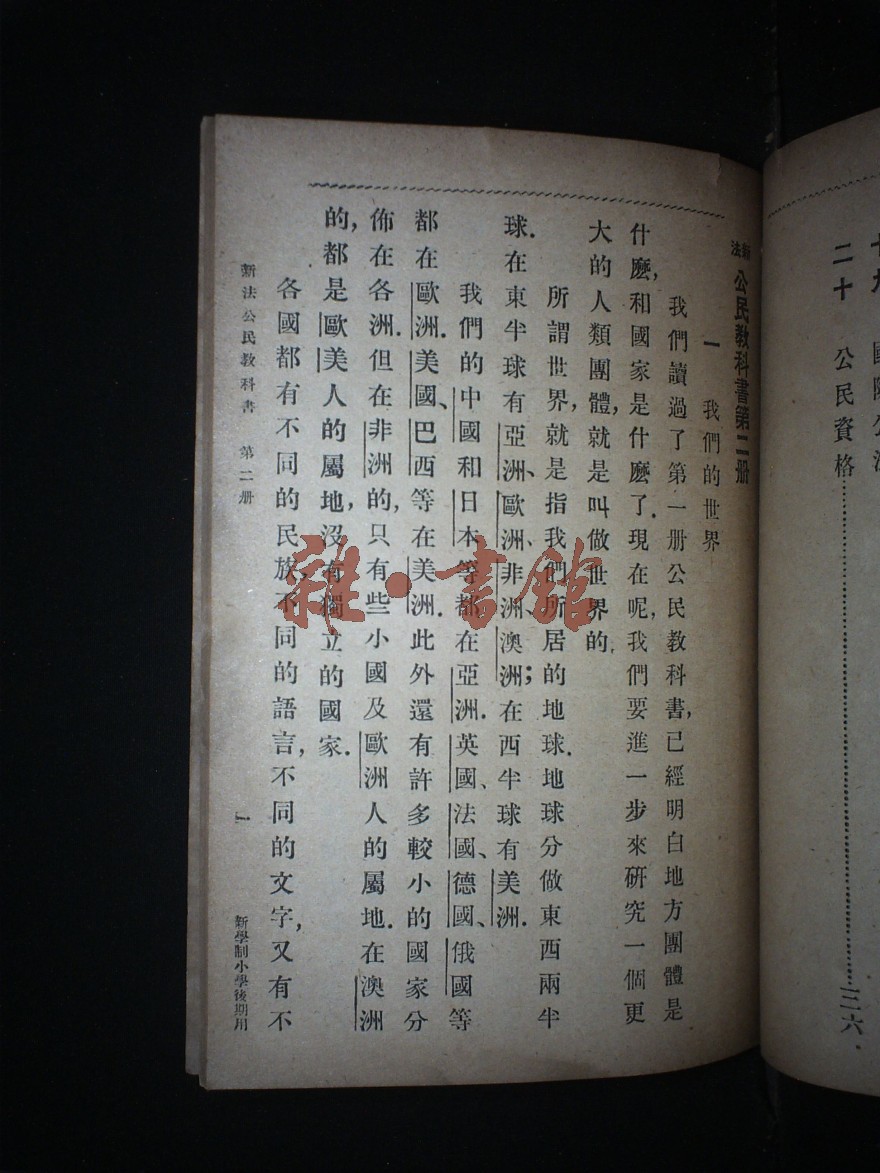 二十 公民資格⋯⋯⋯⋯三六
新法 公民教科書第二册
一 我們的世界
我們讀過了第一册公民教科書,已經明白地方團體是
什麽,和國家是什麽了.現在呢,我們要進一步來硏究一個更
大的人類團體,就是叫做世界的.
所謂世界,就是指我們所居的地球.地球分做東西兩半
球.在東半球有亞洲、歐洲、非洲、澳洲;在西半球有美洲.
我們的中國和日本等都在亞洲.英國、法國、德國、俄國等
都在歐洲.美國、巴西等在美洲.此外還有許多較小的國家分
佈在各洲.但在非洲的,只有些小國及歐洲人的屬地.在澳洲
的,都是歐美人的屬地,沒有獨立的國家.
各國都有不同的民族,不同的語言,不同的文字,又有不
新法公民教科書 第二册
一
新學制小學後期用
雜·書館